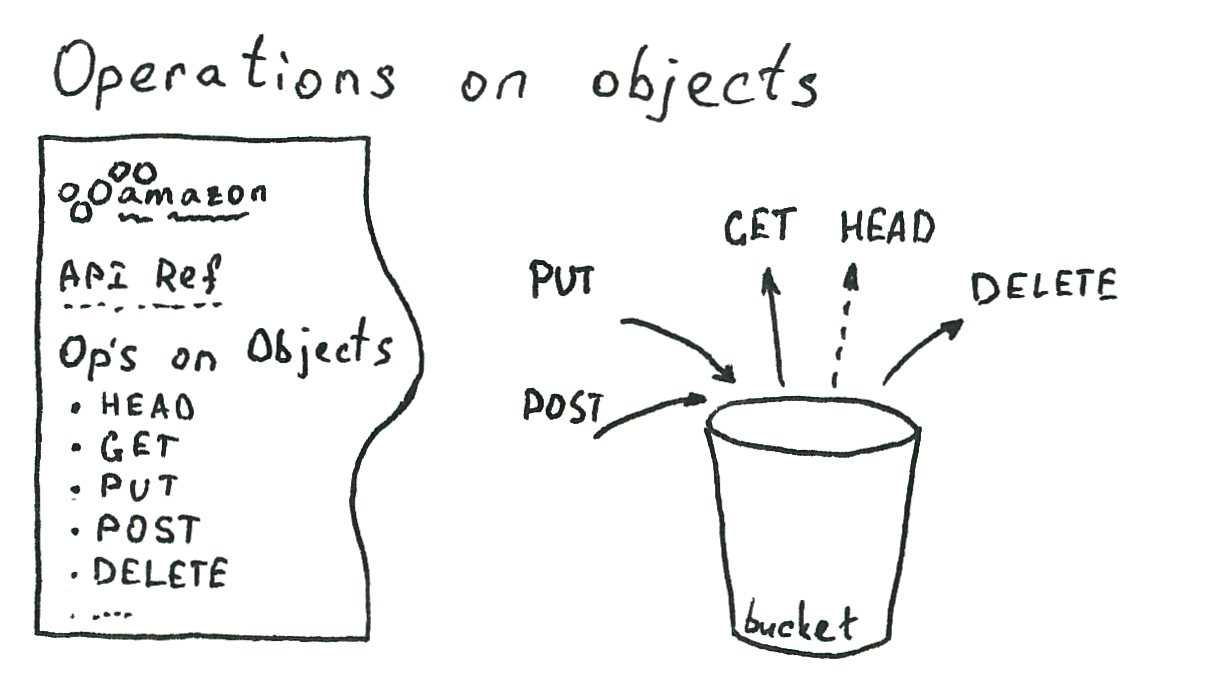 Operations on objects
amazon
API Ref
Op's on Objects
• HEAD
• GET
• PUT
• POST
• DELETE
. ....
PUT
POST
GET
HEAD
DELETE
bucket